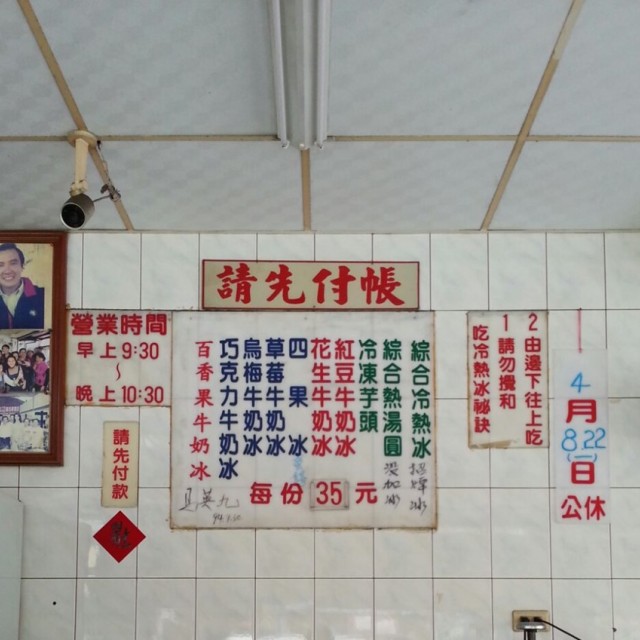 請先付帳
營業時間
早上9:30
～
晚上10:30
請先付款
綜合冷熱冰
綜合熱湯圓
冷凍芋頭
紅豆牛奶冰
花生牛奶冰
四果冰
草莓牛奶冰
烏梅牛奶冰
巧克力牛奶冰
百香果牛奶冰
每份35元
吃冷熱冰祕訣
1請勿攪和
2由邊下往上吃
4
月
8 22
日
公休